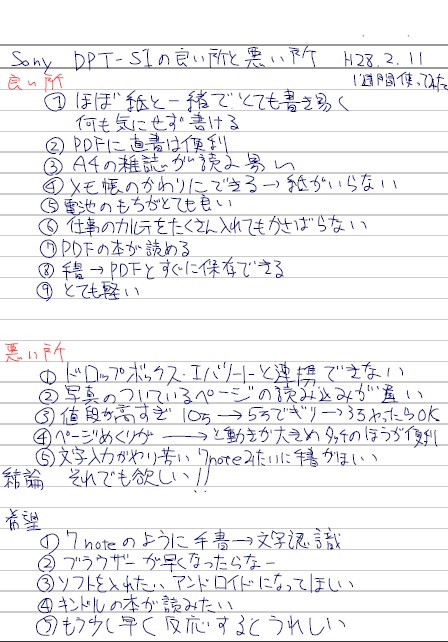 Sony DPT-S1の良い所と悪い所 H28.2.11
良い所 1週間使ってみた。
① ほぼ紙と一緒でとても書き易く
何も気にせず書ける
② PDFに直書は便利
③ A4の雑誌が読み易い
④ メモ帳のかわりにできる→紙がいらない
⑤ 電池のもちがとても良い
⑥ 仕事のカルテをたくさん入れてもかさばらない
⑦ PDFの本が読める
⑧ 手書→PDFとすぐに保存できる
⑨ とても軽い
悪い所
① ドロップボックス・エバノートと連携できない
② 写真のついているページの読み込みが遅い
③ 値段が高すぎ 10万→5万でぎり→3万やったらOK
④ ページめくりが→と動きが大きめ タッチのほうが便利
⑤ 文字入力がやり苦い 7noteみたいに手書がほしい
結論 それでも欲しい!!
希望
① 7noteのように手書→文字認識
② ブラウザーが早くなったらなー
③ ソフトを入れたい アンドロイドになってほしい
④ キンドルの本が読みたい
⑤ もう少し早く反応するとうれしい